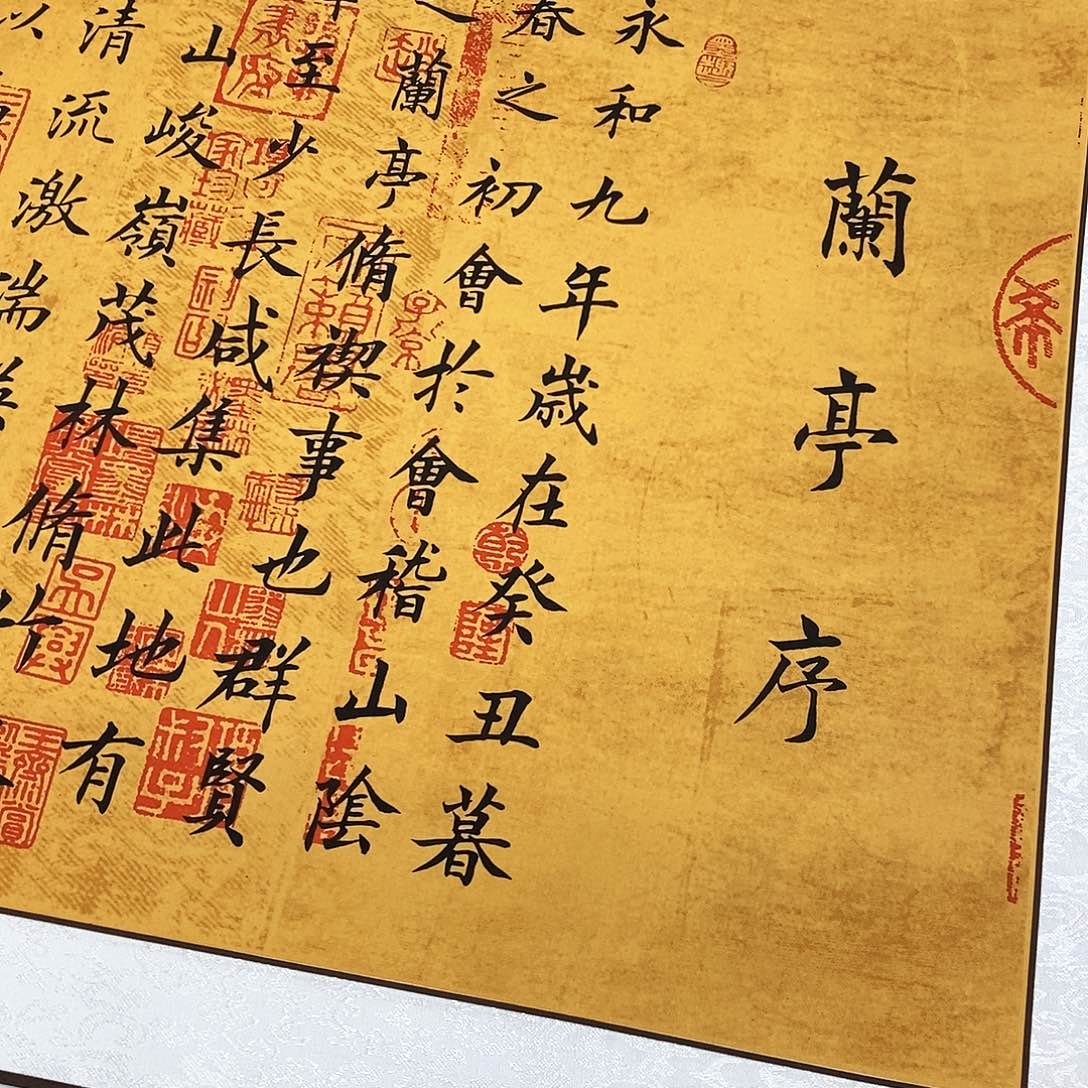 蘭亭序
永和九年歲在癸丑暮
春之初會於會稽山陰
之蘭亭脩禊事也群賢
至少長咸集此地有
山峻嶺茂林脩竹
清流激湍
以